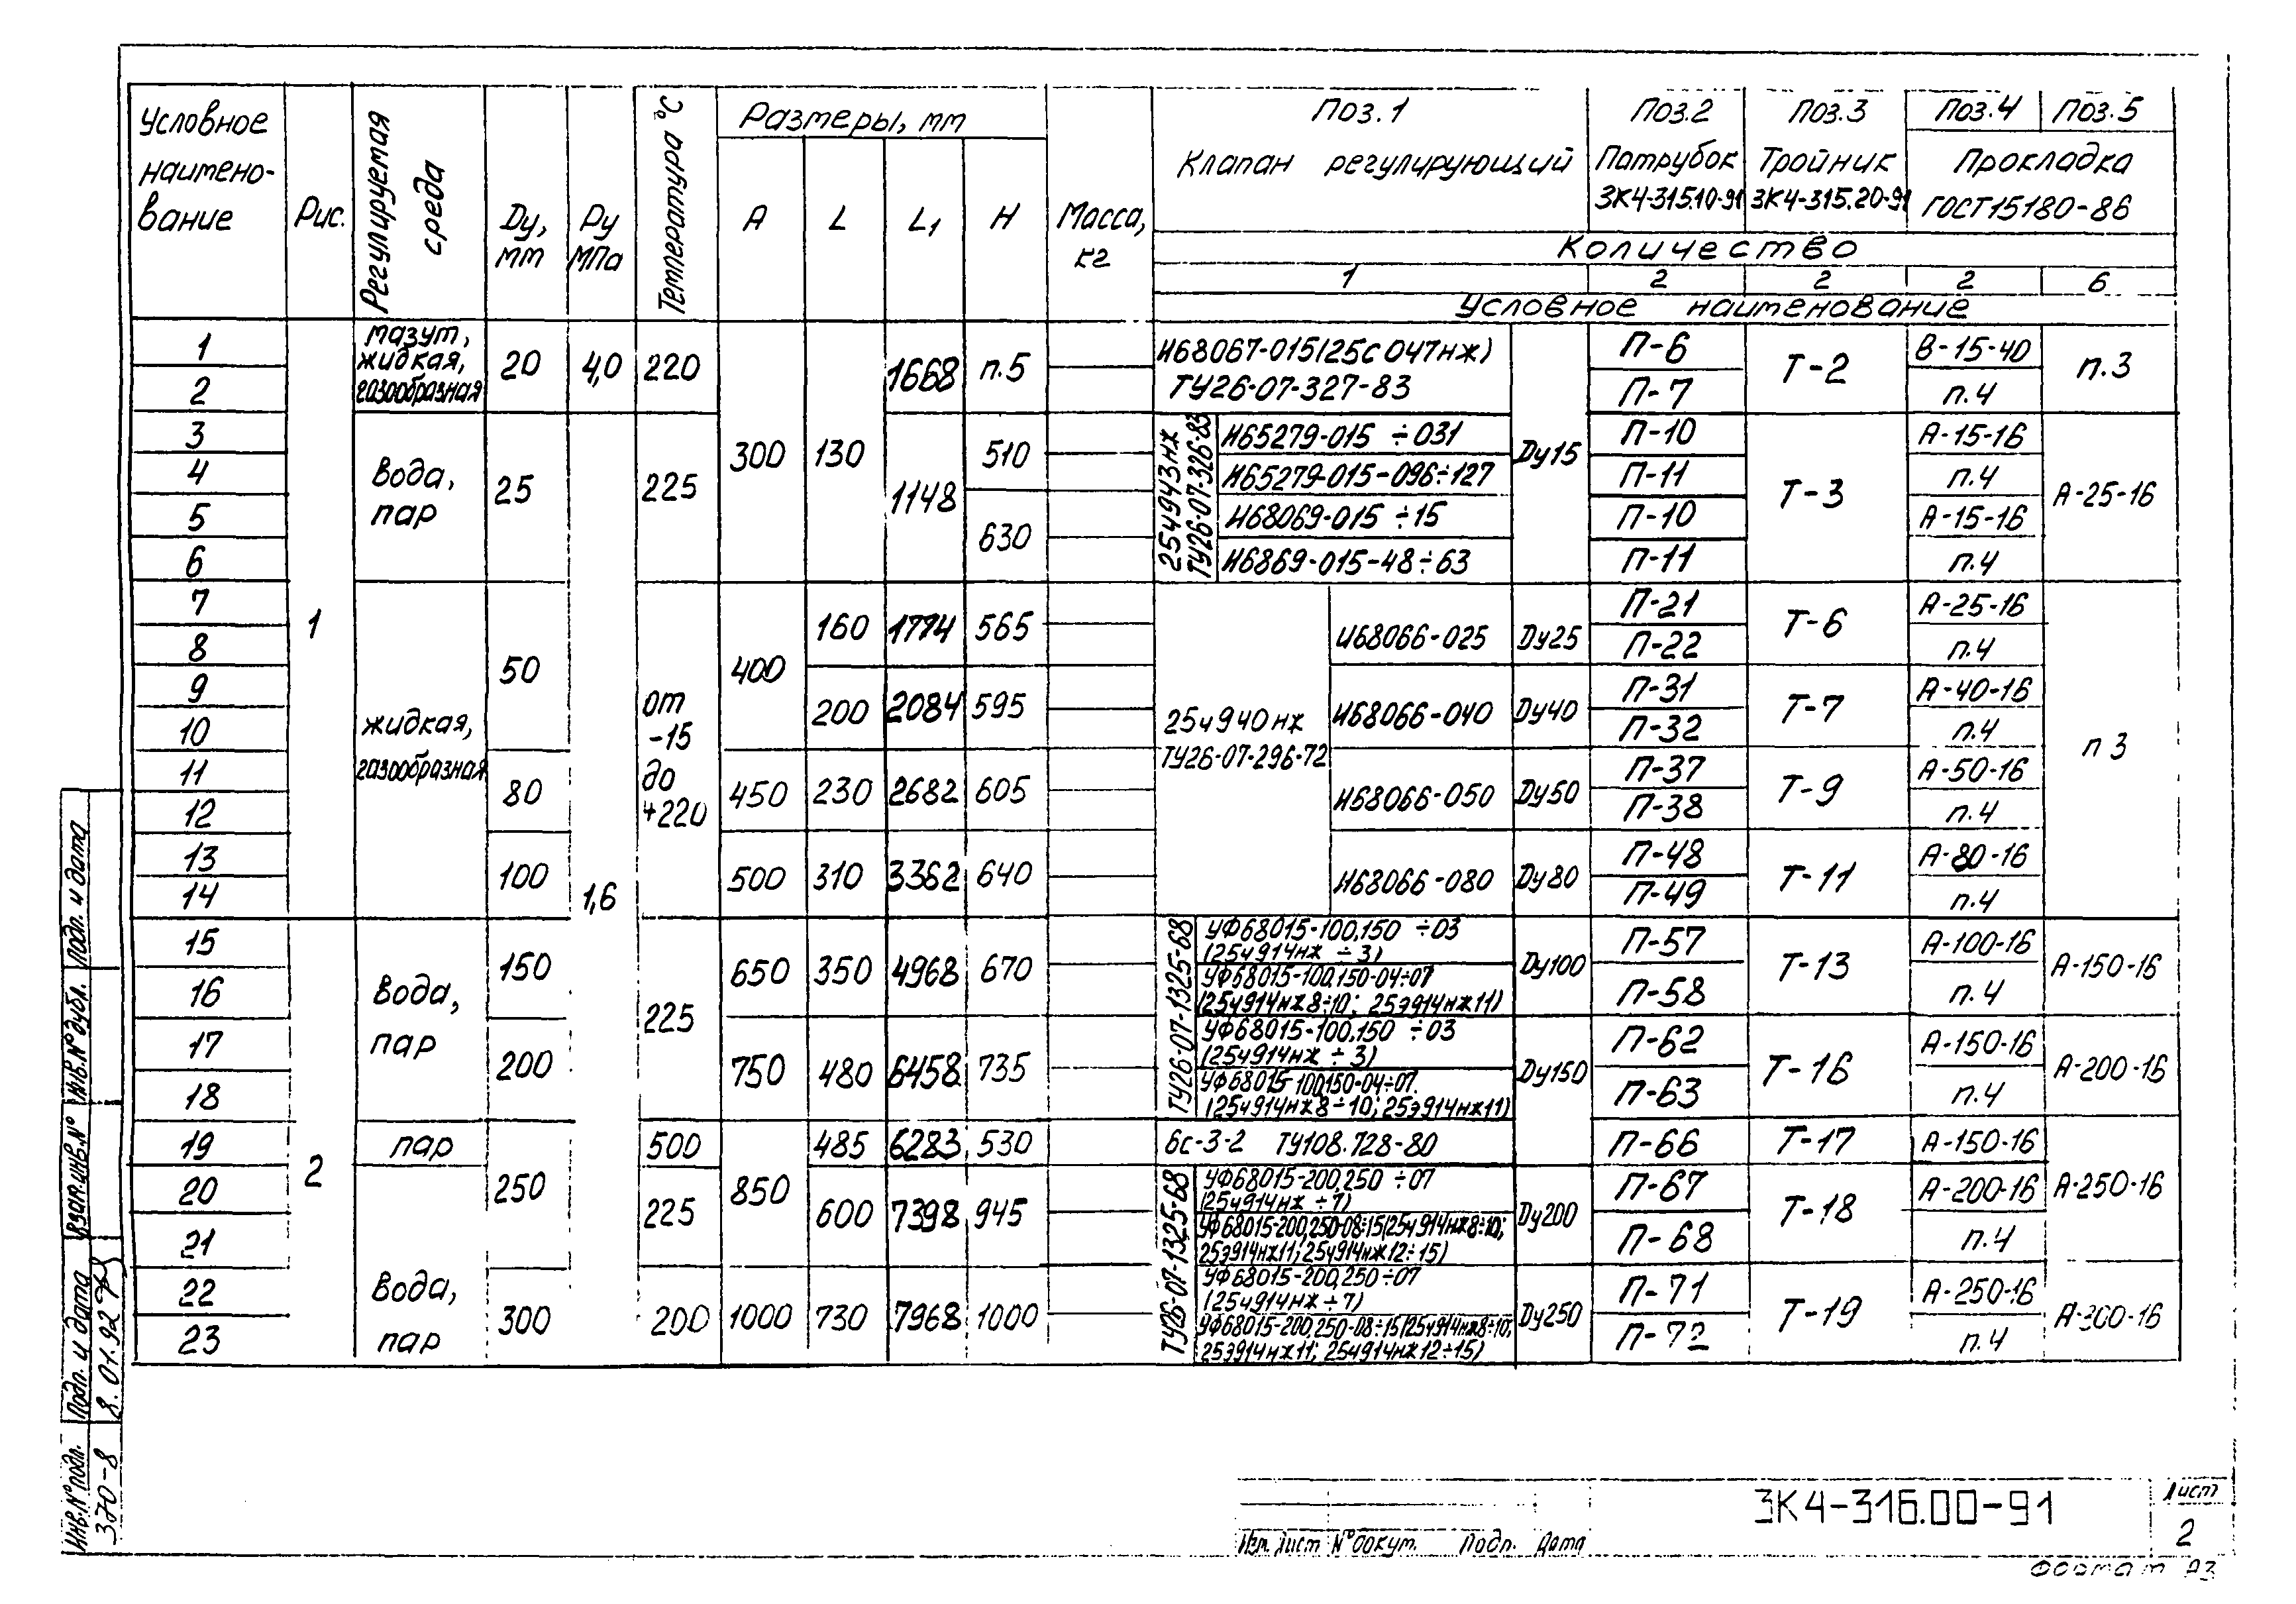 Условное наимено- вание
Рис.
Регулируемая среда
Dy, мм
Ру МПа
Температура °С
Размеры, мм
А L L₁ Н
Масса, кг
Поз.1 Поз.2 Поз.3 Поз.4 Поз.5
Клапан регулирующий Патрубок Тройник Прокладка
ЗК4-315.10-91 ЗК4-315.20-91 ГОСТ15180-86
Количество
1 2 2 2 6
Условное наименование
1 мазут, жидкая, газообразная 20 4,0 220 300 130 1668 п.5 И68067-015(25с047нж) Dy15 П-6 Т-2 В-15-40 п.3
2 ТУ26-07-327-83 П-7 п.4
1
3 вода, пар 25 1,6 225 1148 510 25ч943нж ТУ26-07-326-83 И65279-015 ÷031 П-10 Т-3 А-15-16 А-25-16
4 И65279-015-096÷127 П-11 п.4
5 630 И68069-015 ÷15 П-10 А-15-16
6 И6869-015-48÷63 П-11 п.4
7 жидкая, газообразная 50 от -15 до +220 400 160 1774 565 25ч940нж ТУ26-07-296-72 И68066-025 Dy25 П-21 Т-6 А-25-16 п 3
8 П-22 п.4
9 200 2084 595 И68066-040 Dy40 П-31 Т-7 А-40-16
10 П-32 п.4
11 80 450 230 2682 605 И68066-050 Dy50 П-37 Т-9 А-50-16
12 П-38 п.4
13 100 500 310 3362 640 И68066-080 Dy80 П-48 Т-11 А-80-16
14 П-49 п.4
15 2 вода, пар 150 225 650 350 4968 670 ТУ26-07-1325-68 УФ68015-100,150 ÷03 Dy100 П-57 Т-13 А-100-16 А-150-16
(25ч914нж ÷3)
16 УФ68015-100,150-04÷07 П-58 п.4
(25ч914нж8÷10; 25э914нж11)
17 200 750 480 6458 735 УФ68015-100,150 ÷03 Dy150 П-62 Т-16 А-150-16 А-200-16
(25ч914нж ÷3)
18 УФ68015-100,150-04÷07 П-63 п.4
(25ч914нж8÷10; 25э914нж11)
19 пар 250 500 850 485 6283 530 6с-3-2 ТУ108.728-80 П-66 Т-17 А-150-16 А-250-16
20 вода, пар 225 600 7398 945 ТУ26-07-1325-68 УФ68015-200,250 ÷07 Dy200 П-67 Т-18 А-200-16
(25ч914нж ÷7)
21 УФ68015-200,250-08÷15(25ч914нж8÷10; П-68 п.4
25э914нж11; 25ч914нж12÷15)
22 300 200 1000 730 7968 1000 УФ68015-200,250÷07 Dy250 П-71 Т-19 А-250-16 А-300-16
(25ч914нж ÷7)
23 УФ68015-200,250-08÷15(25ч914нж8÷10; П-72 п.4
25э914нж11; 25ч914нж12÷15)
Инв.№подл. Подп. и дата Взам.инв.№ Инв.№дубл. Подп. и дата
370-8 8.01.92
Изм. Лист №докум. Подп. Дата
ЗК4-316.00-91
Лист
2
Формат А3